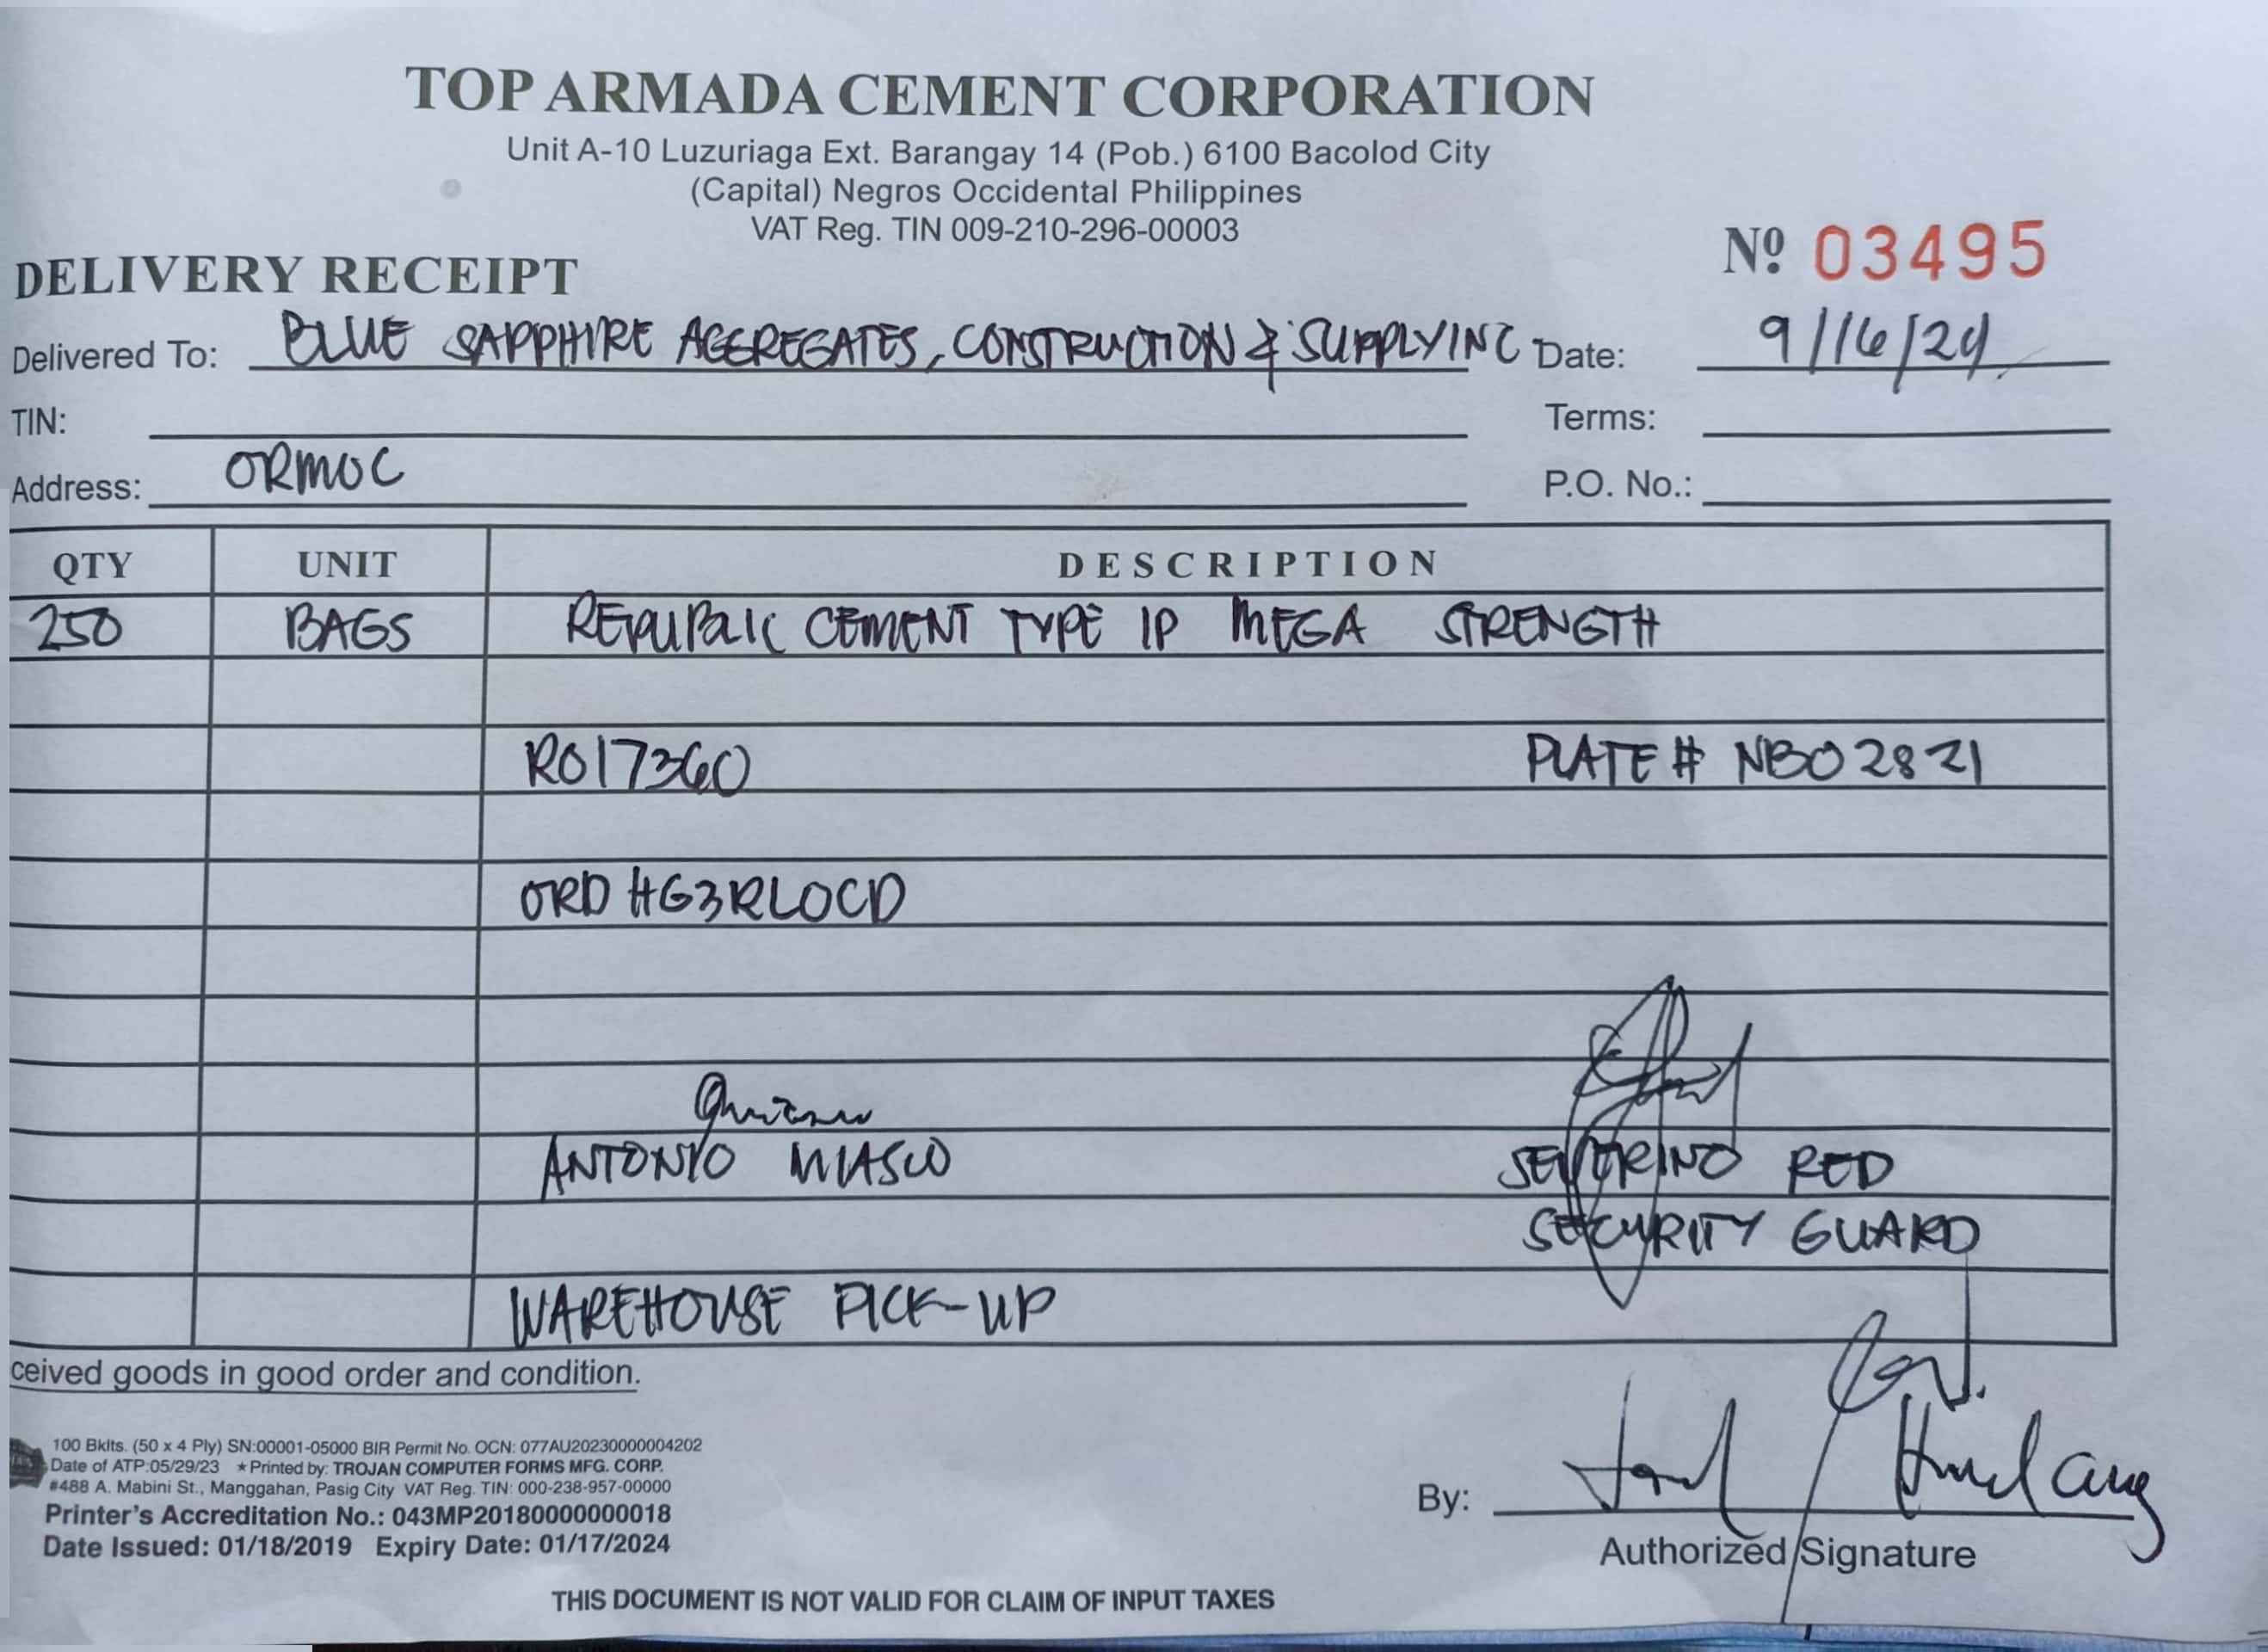 TOP ARMADA CEMENT CORPORATION
Unit A-10 Luzuriaga Ext. Barangay 14 (Pob.) 6100 Bacolod City
(Capital) Negros Occidental Philippines
VAT Reg. TIN 009-210-296-00003
Nº 03495
DELIVERY RECEIPT
Delivered To: BLUE SAPPHIRE AGGREGATES, CONSTRUCTION & SUPPLY INC Date: 9/16/24
TIN: Terms:
Address: ORMOC P.O. No.:
QTY UNIT DESCRIPTION
250 BAGS REPUBLIC CEMENT TYPE IP MEGA STRENGTH
RO17360 PLATE # NBO2821
ORD #G3RLOCD
ANTONIO
SEVERINO RED
SECURITY GUARD
WAREHOUSE PICK-UP
ceived goods in good order and condition.
100 Bklts. (50 x 4 Ply) SN:00001-05000 BIR Permit No. OCN: 077AU20230000004202
Date of ATP:05/29/23 ★Printed by: TROJAN COMPUTER FORMS MFG. CORP.
#488 A. Mabini St., Manggahan, Pasig City VAT Reg. TIN: 000-238-957-00000
Printer's Accreditation No.: 043MP20180000000018
Date Issued: 01/18/2019 Expiry Date: 01/17/2024
By:
Authorized Signature
THIS DOCUMENT IS NOT VALID FOR CLAIM OF INPUT TAXES